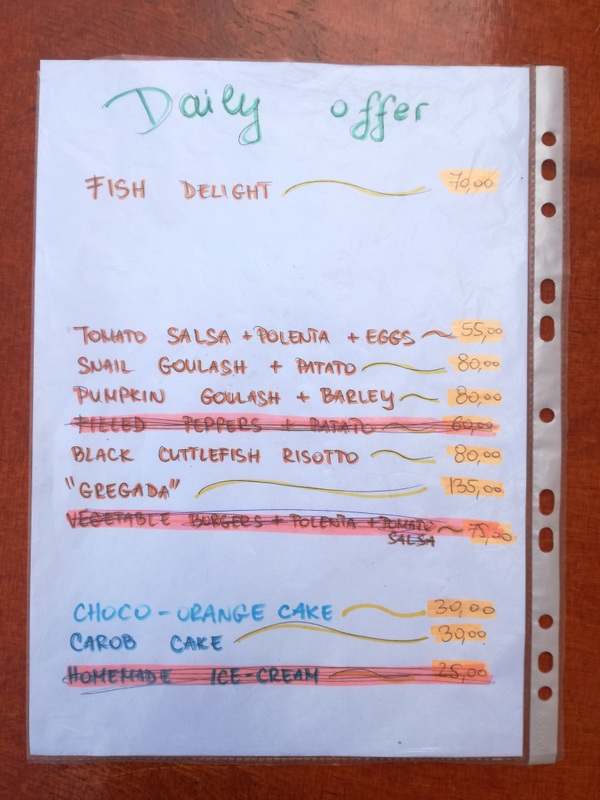 Daily offer
FISH DELIGHT 70,00
TOMATO SALSA + POLENTA + EGGS 55,00
SNAIL GOULASH + PATATO 80,00
PUMPKIN GOULASH + BARLEY 80,00
FILLED PEPPERS + PATATO 60,00
BLACK CUTTLEFISH RISOTTO 80,00
"GREGADA" 135,00
VEGETABLE BURGERS + POLENTA + TOMATO 75,00
SALSA
CHOCO-ORANGE CAKE 30,00
CAROB CAKE 30,00
HOMEMADE ICE-CREAM 25,00